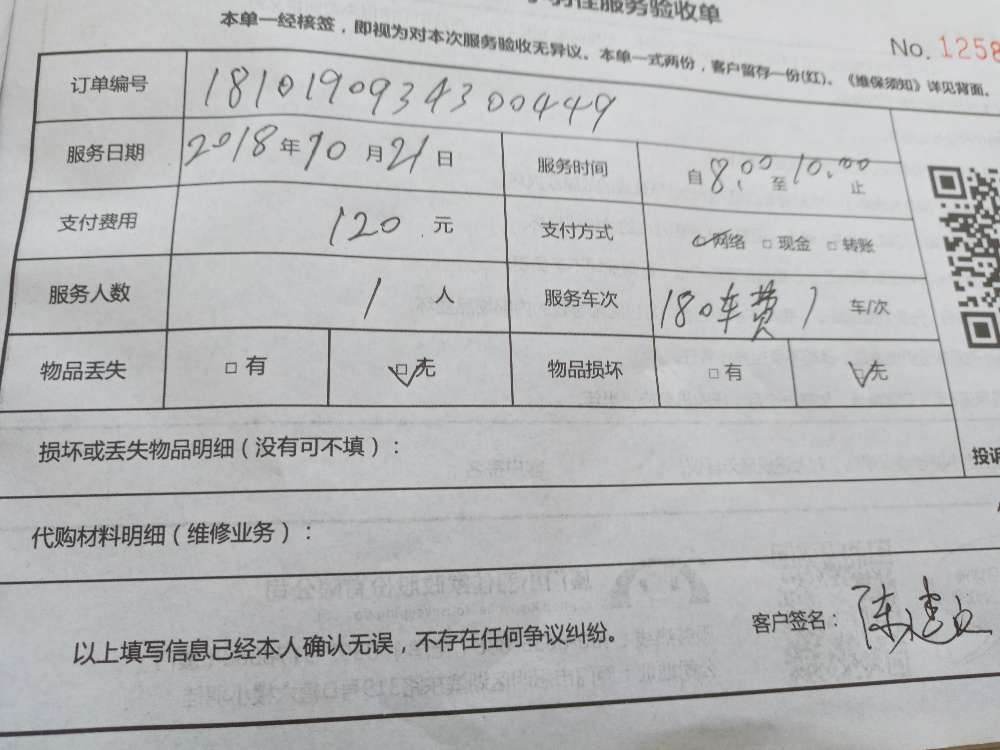 佳服务验收单
本单一经核签，即视为对本次服务验收无异议。本单一式两份，客户留存一份(红)。《维保须知》详见背面。
No. 1258
订单编号 1810190934300449
服务日期 2018年10月21日 服务时间 自8:00至10:00止
支付费用 120元 支付方式 □网络 □现金 □转账
服务人数 1人 服务车次 180车费1车/次
物品丢失 □有 □无 物品损坏 □有 □无
损坏或丢失物品明细（没有可不填）：
投诉
代购材料明细（维修业务）：
客户签名：陈
以上填写信息已经本人确认无误，不存在任何争议纠纷。